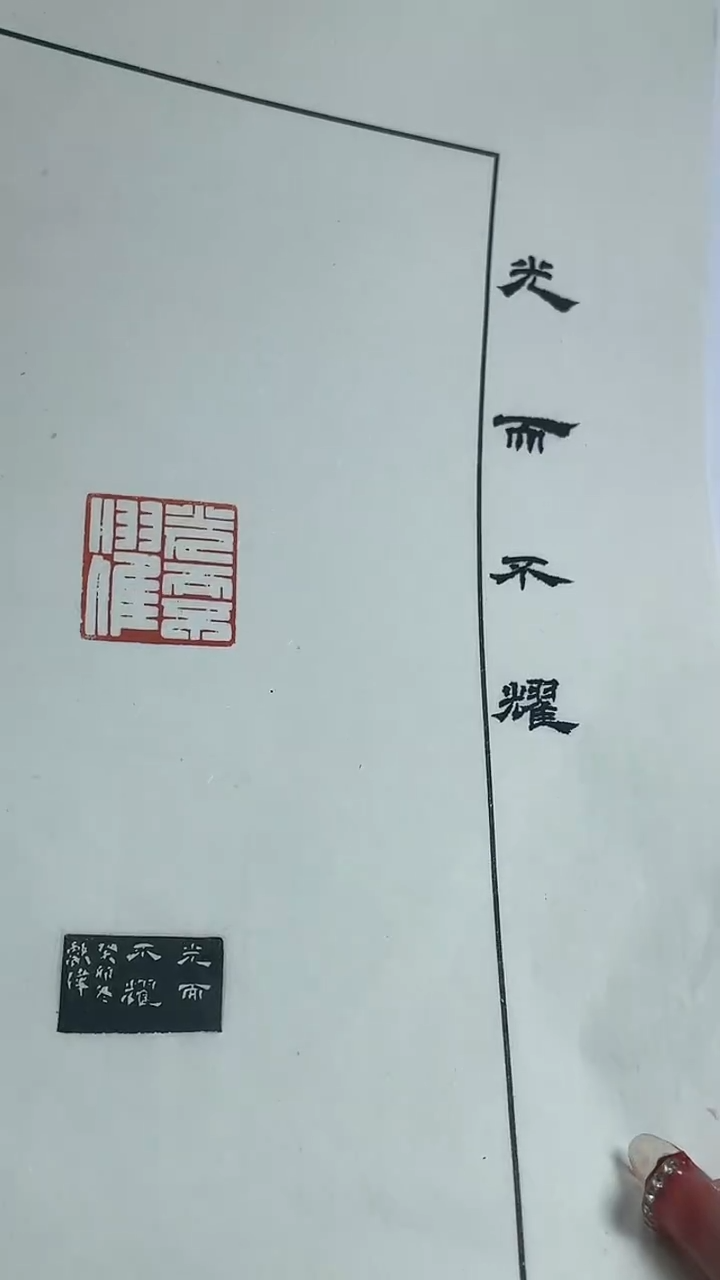 光而不耀
光而不耀
光而
不耀
癸卯冬